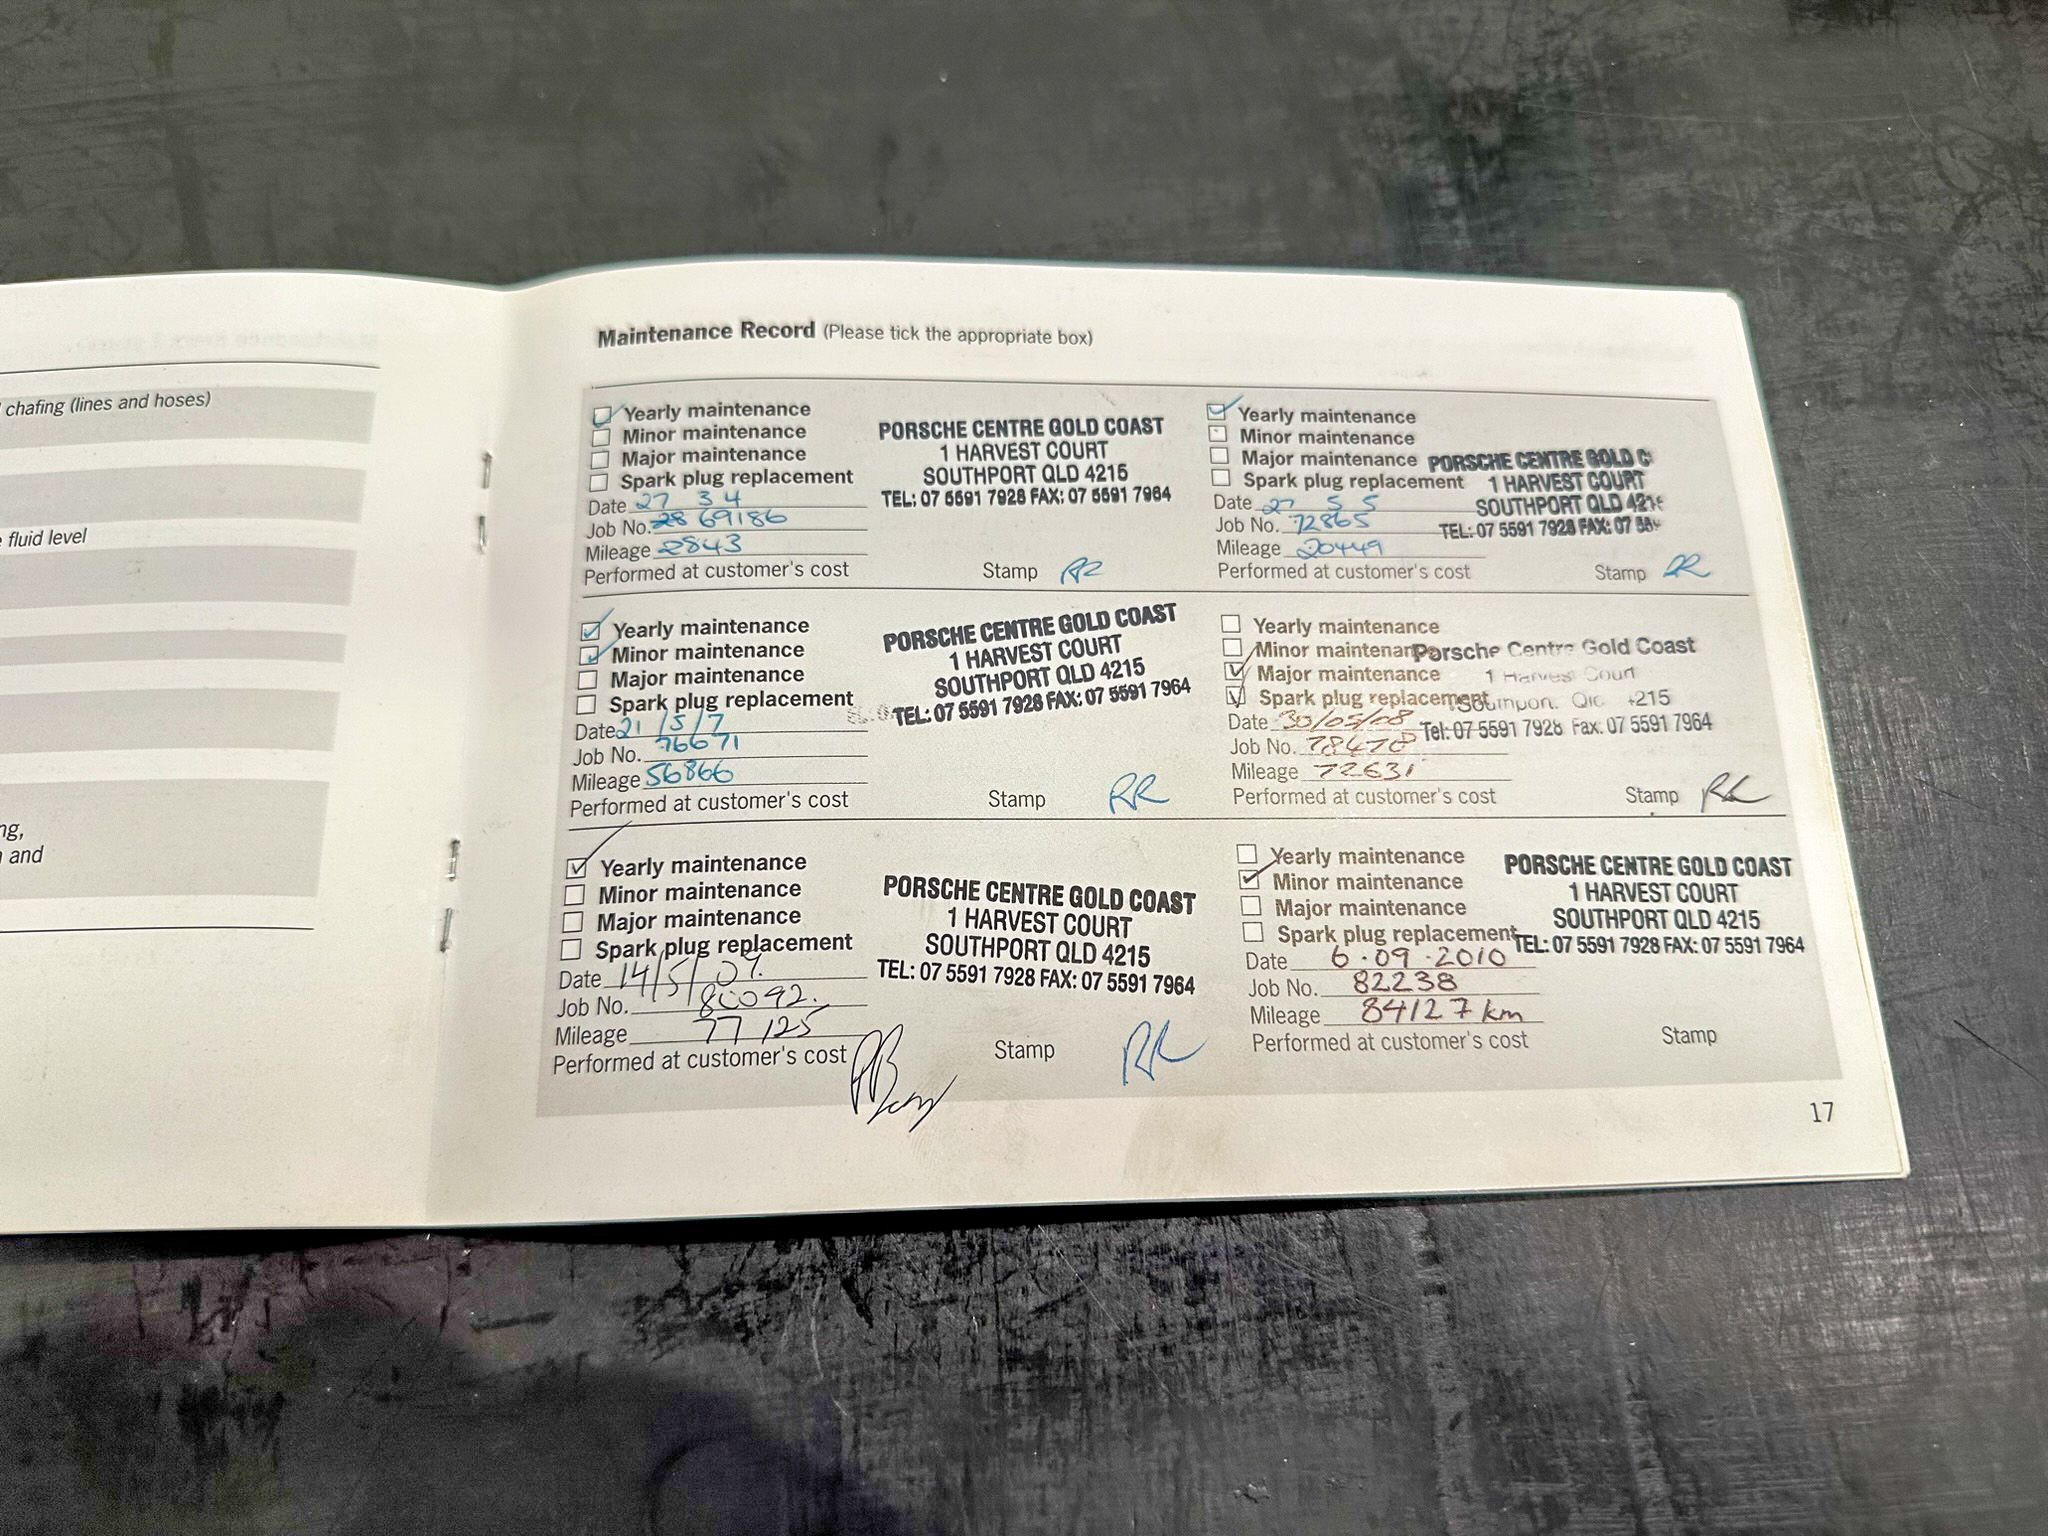 chafing (lines and hoses)
fluid level
ng,
and
Maintenance Record (Please tick the appropriate box)
Yearly maintenance
Minor maintenance
Major maintenance
Spark plug replacement
Date 27 3 4
Job No. 28 69186
Mileage 2843
Performed at customer's cost
PORSCHE CENTRE GOLD COAST
1 HARVEST COURT
SOUTHPORT QLD 4215
TEL: 07 5591 7928 FAX: 07 5591 7964
Stamp RR
Yearly maintenance
Minor maintenance
Major maintenance
Spark plug replacement
Date 27 5 5
Job No. 72865
Mileage 20449
Performed at customer's cost
PORSCHE CENTRE GOLD C
1 HARVEST COURT
SOUTHPORT QLD 421
TEL: 07 5591 7928 FAX: 07 55
Stamp RR
Yearly maintenance
Minor maintenance
Major maintenance
Spark plug replacement
Date 21/5/7
Job No. 76671
Mileage 56866
Performed at customer's cost
PORSCHE CENTRE GOLD COAST
1 HARVEST COURT
SOUTHPORT QLD 4215
TEL: 07 5591 7928 FAX: 07 5591 7964
Stamp RR
Yearly maintenance
Minor maintenance
Major maintenance
Spark plug replacement
Date 30/05/08
Job No. 78478
Mileage 72631
Performed at customer's cost
Porsche Centre Gold Coast
1 Harvest Court
4215
Tel: 07 5591 7928 Fax: 07 5591 7964
Stamp RR
Yearly maintenance
Minor maintenance
Major maintenance
Spark plug replacement
Date 14/5/09.
Job No. 80092.
Mileage 77125
Performed at customer's cost
PORSCHE CENTRE GOLD COAST
1 HARVEST COURT
SOUTHPORT QLD 4215
TEL: 07 5591 7928 FAX: 07 5591 7964
Stamp RR
Yearly maintenance
Minor maintenance
Major maintenance
Spark plug replacement
Date 6.09.2010
Job No. 82238
Mileage 84127 km
Performed at customer's cost
PORSCHE CENTRE GOLD COAST
1 HARVEST COURT
SOUTHPORT QLD 4215
TEL: 07 5591 7928 FAX: 07 5591 7964
Stamp
17